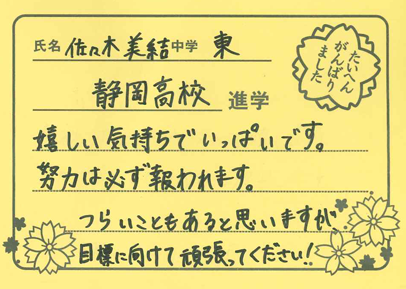 氏名 佐々木美結 中学 東
静岡高校 進学
嬉しい気持ちでいっぱいです。
努力は必ず報われます。
つらいこともあると思いますが、
目標に向けて頑張ってください!!
たいへん
がんばり
ました